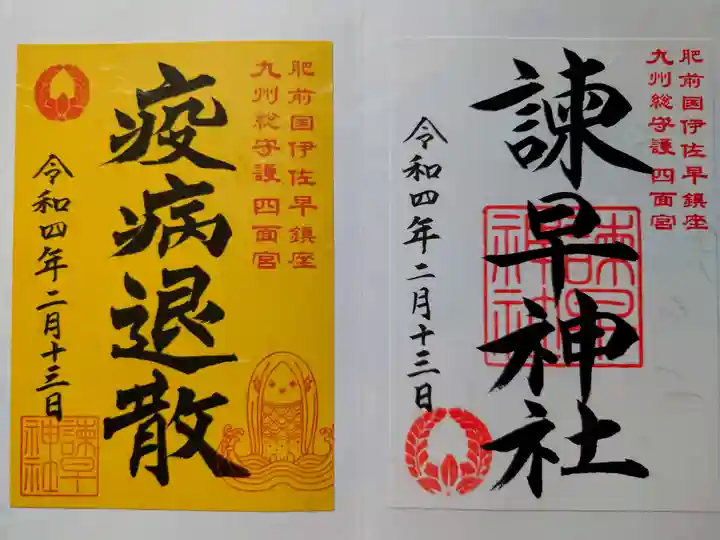 肥前国伊佐早鎮座
九州総守護 四面宮
疫病退散
令和四年二月十三日
諫早神社
肥前国伊佐早鎮座
九州総守護 四面宮
諫早神社
諫早神社
令和四年二月十三日